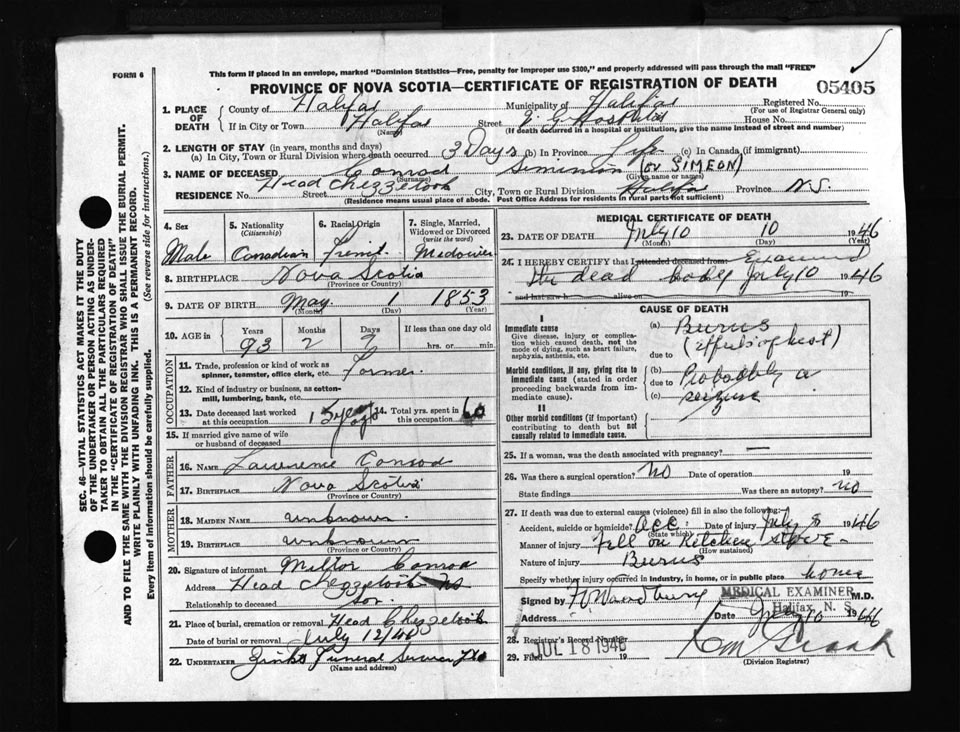 This form if placed in an envelope, marked "Dominion Statistics—Free, penalty for improper use $300," and properly addressed will pass through the mail "FREE"
FORM 6
PROVINCE OF NOVA SCOTIA—CERTIFICATE OF REGISTRATION OF DEATH
05405
1. PLACE OF DEATH
County of Halifax Municipality of Halifax Registered No.
(For use of Registrar General only)
If in City or Town Halifax Street Hospital House No.
(Name) (If death occurred in a hospital or institution, give the name instead of street and number)
2. LENGTH OF STAY (in years, months and days)
(a) In City, Town or Rural Division where death occurred 3 Days (b) In Province Life (c) In Canada (if immigrant)
3. NAME OF DECEASED Conrod Siminion (or SIMEON)
(Surname) (Given name or names)
RESIDENCE No. Head Chezzetook Street City, Town or Rural Division Halifax Province N.S.
(Residence means usual place of abode. Post Office Address for residents in rural parts not sufficient)
4. Sex
Male
5. Nationality
(Citizenship)
Canadian
6. Racial Origin
7. Single, Married, Widowed or Divorced
(write the word)
8. BIRTHPLACE Nova Scotia
(Province or Country)
9. DATE OF BIRTH May 1 1853
(Month) (Day) (Year)
10. AGE in
Years Months Days If less than one day old
93 2 9 hrs. or min.
OCCUPATION
11. Trade, profession or kind of work as spinner, teamster, office clerk, etc. Farmer
12. Kind of industry or business, as cotton-mill, lumbering, bank, etc.
13. Date deceased last worked at this occupation 15 years ago
14. Total yrs. spent in this occupation 60
15. If married give name of wife or husband of deceased
FATHER
16. NAME Lawrence Conrod
17. BIRTHPLACE Nova Scotia
(Province or Country)
MOTHER
18. MAIDEN NAME unknown
19. BIRTHPLACE unknown
(Province or Country)
20. Signature of informant Conrod
Address Head Chezzetook NS
Relationship to deceased son.
21. Place of burial, cremation or removal Head Chezzetook
Date of burial or removal July 12/46
22. UNDERTAKER Funeral Service
(Name and address)
MEDICAL CERTIFICATE OF DEATH
23. DATE OF DEATH July 10 10 1946
(Month) (Day) (Year)
24. I HEREBY CERTIFY that I attended deceased from Examined
the dead body July 10 1946
and last saw h alive on 19
CAUSE OF DEATH
I
Immediate cause
Give disease, injury or complication which caused death, not the mode of dying, such as heart failure, asphyxia, asthenia, etc.
(a) Burns
(effects of heat)
due to
Morbid conditions, if any, giving rise to immediate cause (stated in order proceeding backwards from immediate cause).
(b) Probably a
due to
(c) seizure
II
Other morbid conditions (if important) contributing to death but not causally related to immediate cause.
25. If a woman, was the death associated with pregnancy? —
26. Was there a surgical operation? No Date of operation 19
State findings Was there an autopsy? no
27. If death was due to external causes (violence) fill in also the following:
Accident, suicide or homicide? Acc. Date of injury July 8 1946
(State which)
Manner of injury Fell on kitchen stove -
(How sustained)
Nature of injury Burns
Specify whether injury occurred in industry, in home, or in public place home
Signed by M.D.
MEDICAL EXAMINER
Halifax, N. S.
Address Date July 10 1946
28. Registrar's Record Number
29. Filed JUL 18 1946 19
(Division Registrar)
SEC. 46—VITAL STATISTICS ACT MAKES IT THE DUTY OF THE UNDERTAKER OR PERSON ACTING AS UNDERTAKER TO OBTAIN ALL THE PARTICULARS REQUIRED IN THE "CERTIFICATE OF REGISTRATION OF DEATH" AND TO FILE THE SAME WITH THE DIVISION REGISTRAR WHO SHALL ISSUE THE BURIAL PERMIT.
WRITE PLAINLY WITH UNFADING INK. THIS IS A PERMANENT RECORD.
Every item of Information should be carefully supplied. (See reverse side for instructions.)